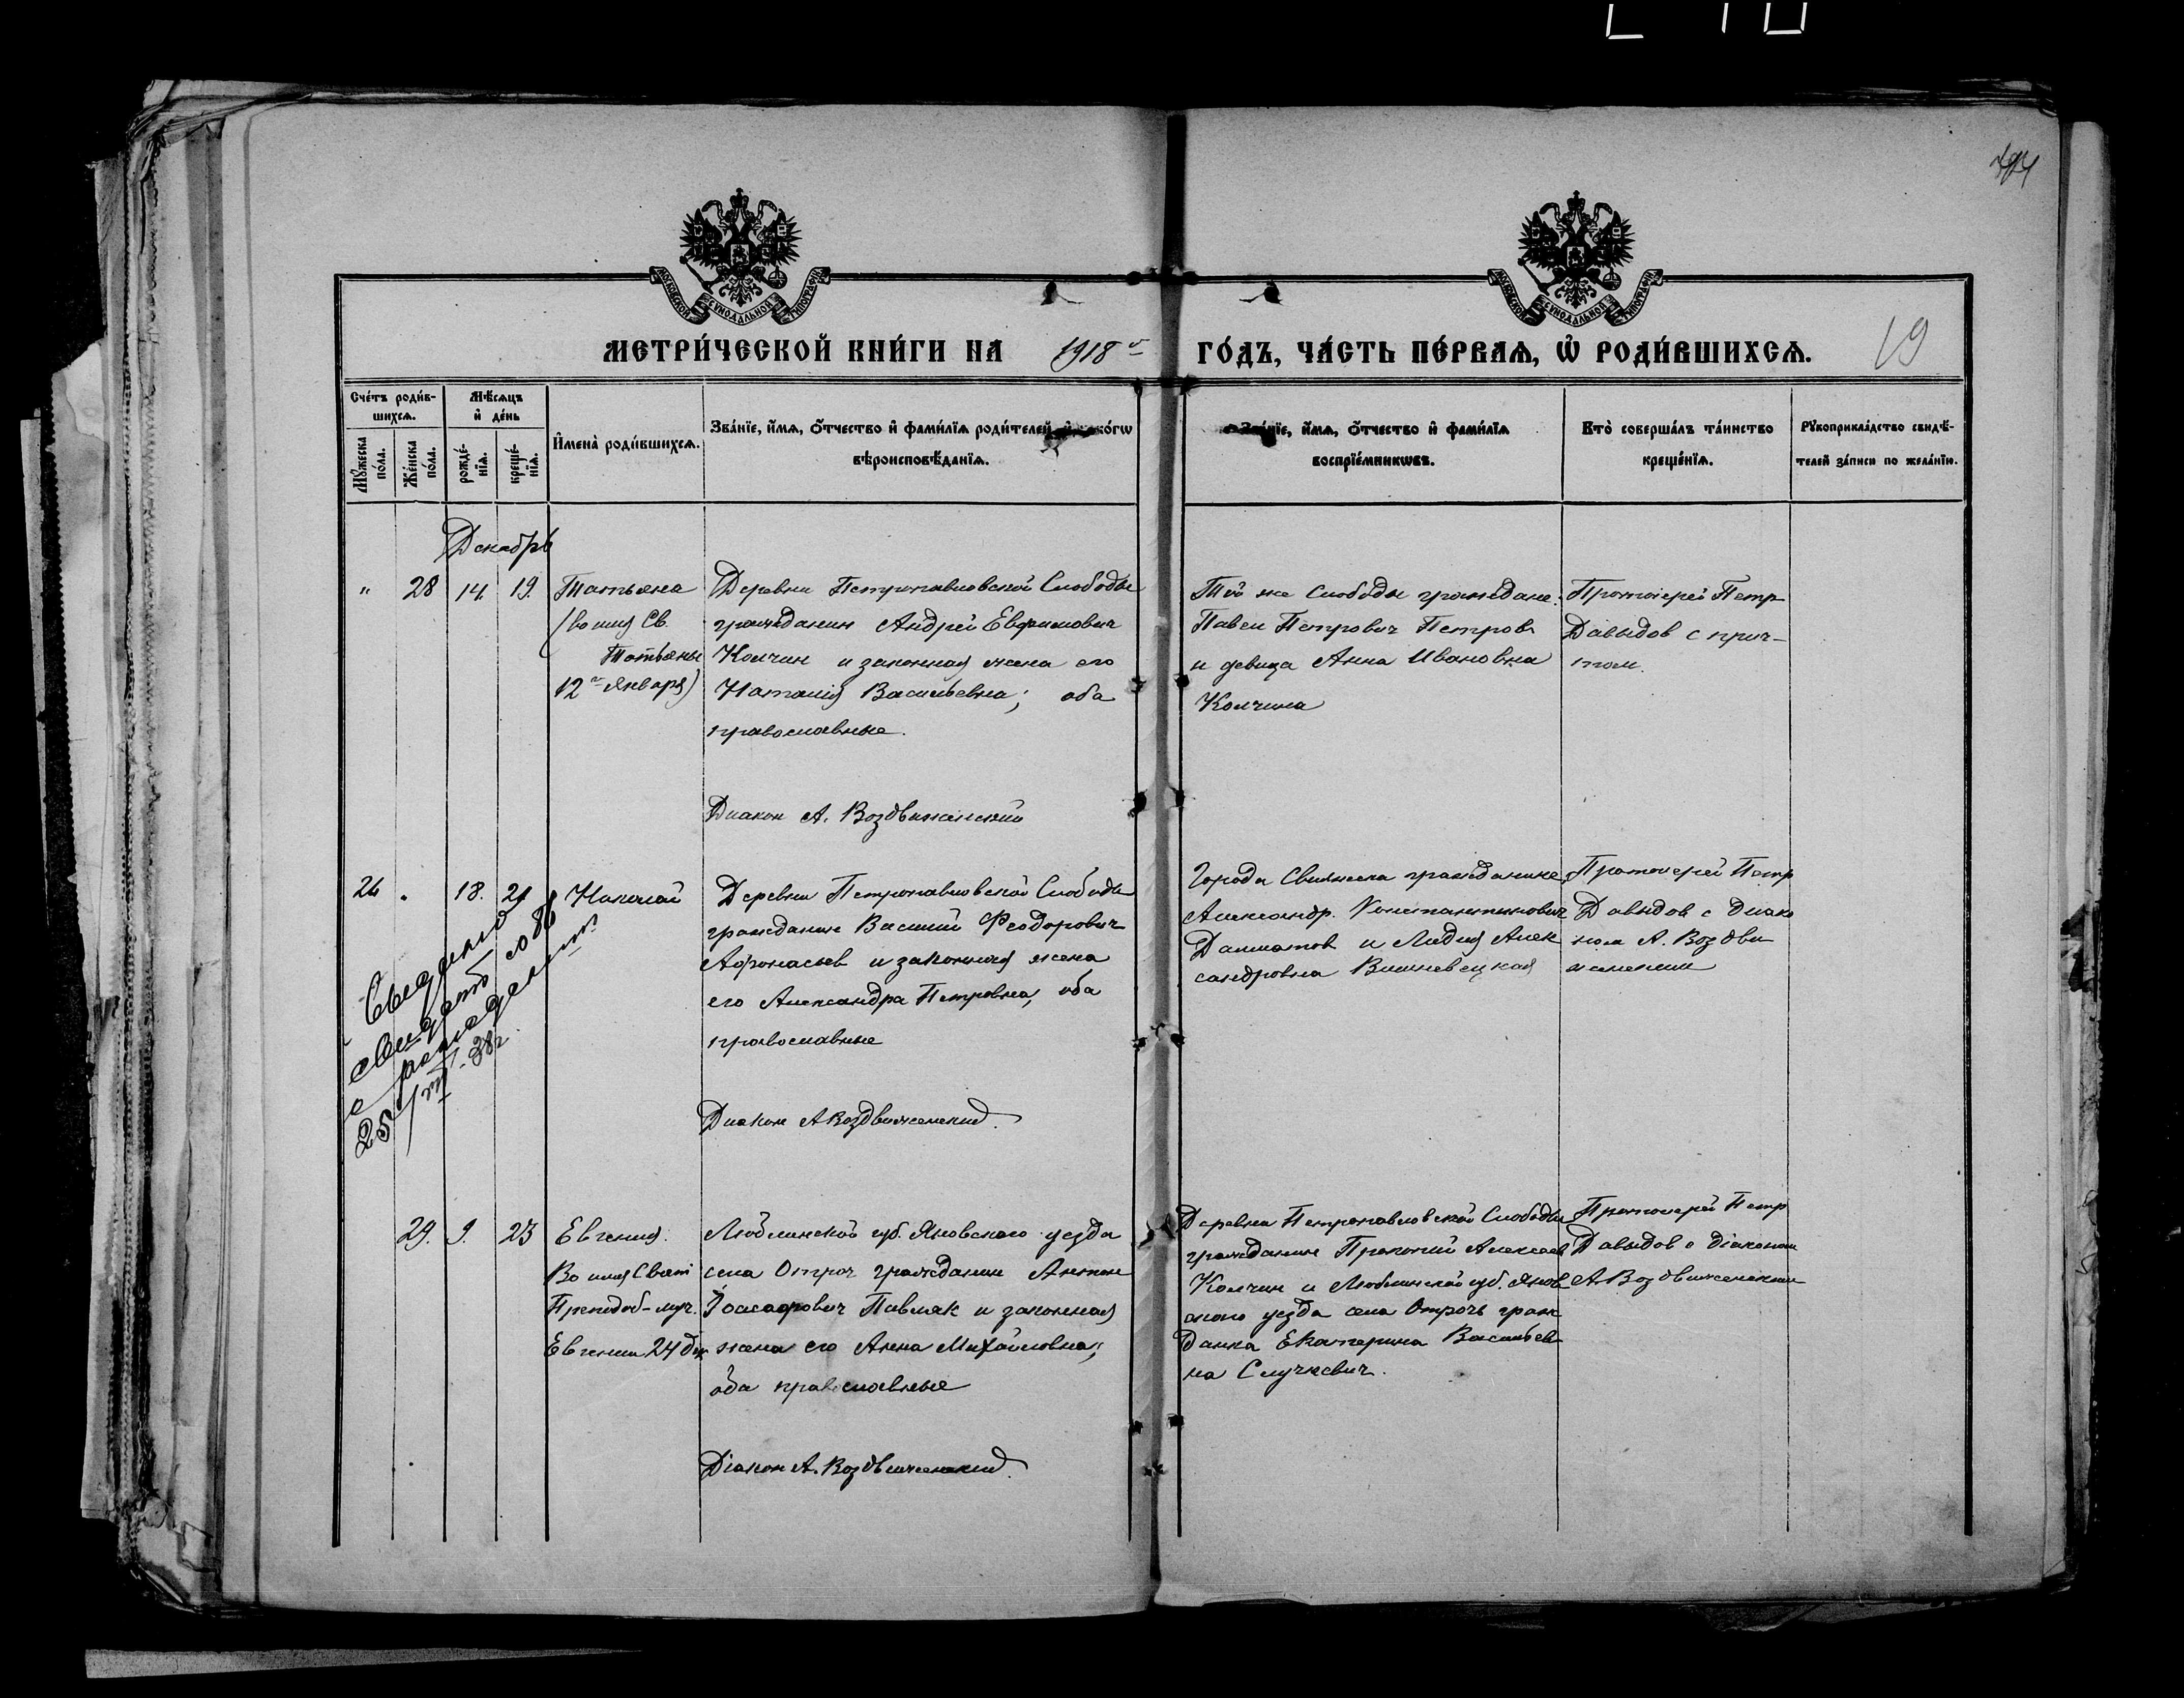 194
МОСКОВСКОЙ СѴНОДАЛЬНОЙ ТИПОГРАФІИ
МОСКОВСКОЙ СѴНОДАЛЬНОЙ ТИПОГРАФІИ
МЕТРИ́ЧЕСКОЙ КНИ́ГИ НА 1918 г. ГО́ДЪ, ЧА́СТЬ ПЕ́РВАѦ, Ѽ РОДИ́ВШИХСѦ. 19
Сче́тъ роди́в-
шихсѧ.
Мꙋ́жеска по́ла.
Же́нска по́ла.
Мѣ́сѧцъ
и҆ де́нь
рожде́-
нїѧ.
креще́-
нїѧ.
И҆мена̀ роди́вшихсѧ.
Зва́нїе, и҆́мѧ, ѻ҆́тчество и҆ фами́лїѧ роди́телей, и҆ како́гѡ
вѣроисповѣ́данїѧ.
Зва́нїе, и҆́мѧ, ѻ҆́тчество и҆ фами́лїѧ
воспрїе́мникѡвъ.
Кто̀ соверша́лъ та́инство
креще́нїѧ.
Рꙋкоприкла́дство свидѣ́-
телей за́писи по жела́нїю.
Декабрь
" 28 14. 19.
Татьяна
(во имя Св.
Татьяны
12го января)
Деревни Петропавловской Слободы
гражданин Андрей Евфимович
Колчин и законная жена его
Наталия Васильевна; оба
православные.
Диакон А. Воздвиженский
Той же Слободы граждане:
Павел Петрович Петров
и девица Анна Ивановна
Колчина
Протоиерей Петр
Давыдов с прич-
том.
26 " 18. 21
Николай
Деревни Петропавловской Слободы
гражданин Василий Феодорович
Афонасьев и законная жена
его Александра Петровна, оба
православные
Диакон А Воздвиженский.
Города Свияжска гражданин
Александр Константинович
Далматов и Лидия Алек
сандровна Вишневецкая
Протоиерей Петр
Давыдов с Диако
ном А. Воздви
женским
свидет
о рождении.
25/VII-38г
29. 9. 23
Евгения.
Во имя Свят
Преподоб-муч.
Евгении 24 дек
Люблинской губ. Яновского уезда
села Отроч гражданин Антон
Іоасафович Павляк и законная
жена его Анна Михайловна;
оба православные
Діакон А. Воздвиженский.
Деревни Петропавловской Слободы
гражданин Прокопий Алексеев
Колчин и Люблинской губ. Янов
ского уезда села Отрочь граж
данка Екатерина Васильев
на Случкевич.
Протоиерей Петр
Давыдов с діаконом
А. Воздвиженским